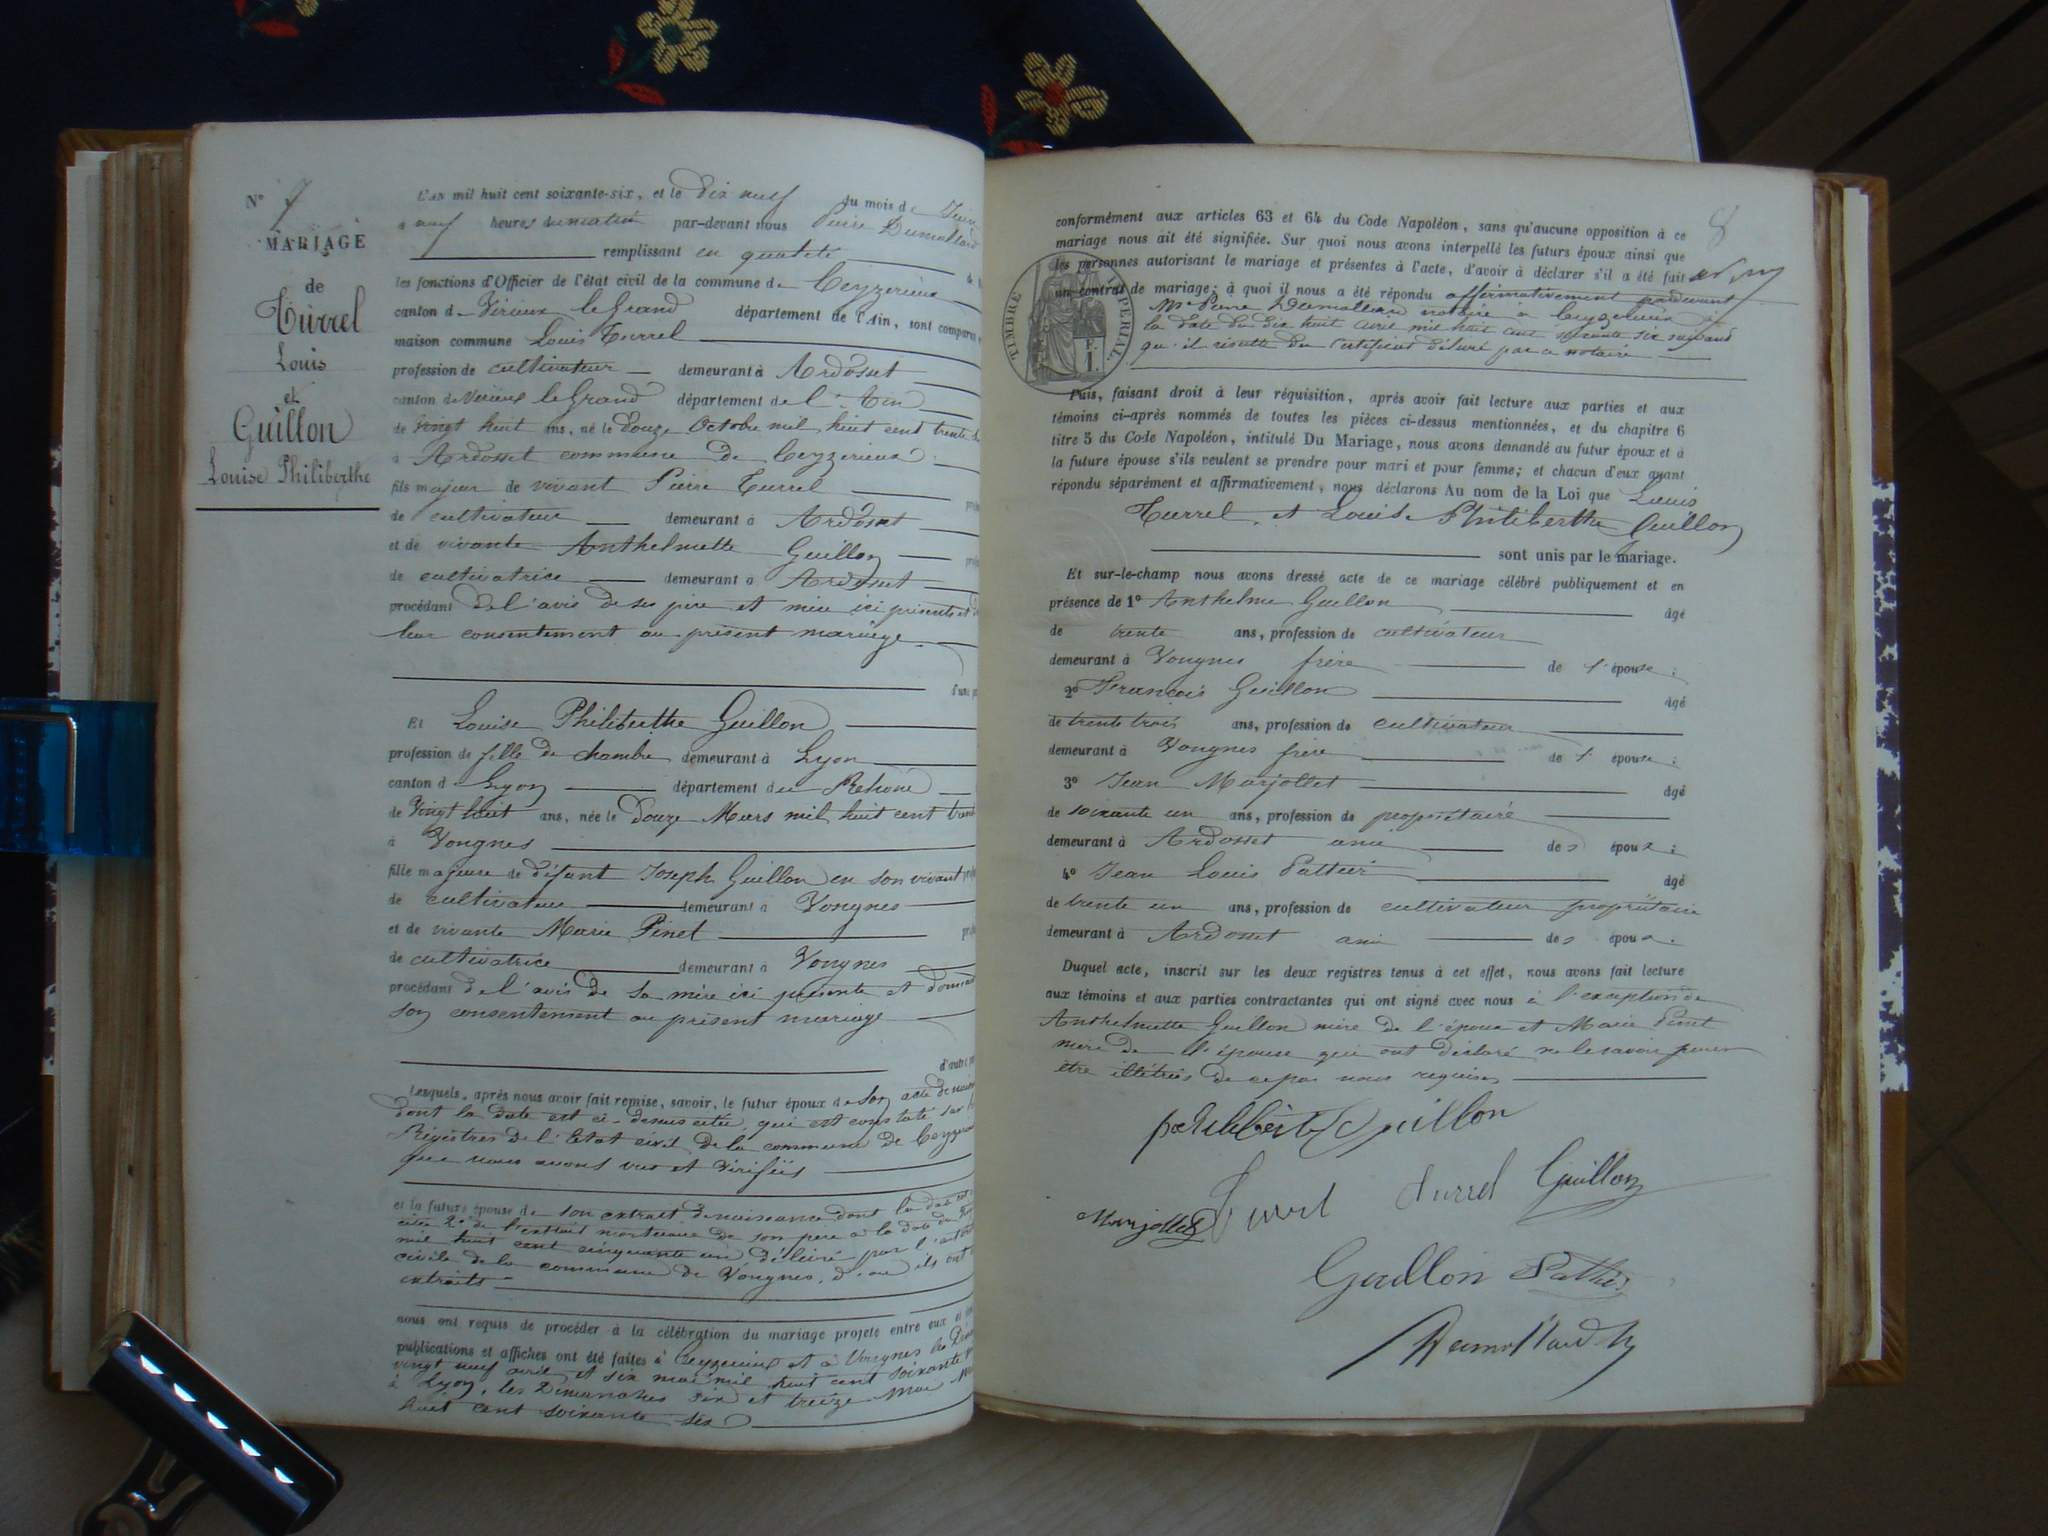 N° 7
MARIAGE
de
Turrel
Louis
et
Guillon
Louise Philiberthe
L'AN mil huit cent soixante-six, et le dix neuf du mois de Juin
à neuf heures du matin par-devant nous Pierre Dumollard
remplissant en qualité
les fonctions d'Officier de l'état civil de la commune de Ceyzerieux
canton de Virieux le Grand département de l'Ain, sont comparus
maison commune Louis Turrel
profession de cultivateur demeurant à Ardosset
canton de Virieux le Grand département de l'Ain
de vingt huit ans, né le douze Octobre mil huit cent trente
à Ardosset commune de Ceyzerieux
fils majeur de vivant Pierre Turrel
de cultivateur demeurant à Ardosset
et de vivante Anthelmette Guillon
de cultivatrice demeurant à Ardosset
procédant de l'avis de ses père et mère ici présents et
leur consentement au présent mariage
d'une
Et Louise Philiberthe Guillon
profession de fille de chambre demeurant à Lyon
canton de Lyon département du Rhône
de vingt huit ans, née le douze Mars mil huit cent trente
à Vongnes
fille majeure de défunt Joseph Guillon en son vivant
de cultivateur demeurant à Vongnes
et de vivante Marie Pinet
de cultivatrice demeurant à Vongnes
procédant de l'avis de sa mère ici présente et donnant
son consentement au présent mariage
d'autre
Lesquels, après nous avoir fait remise, savoir, le futur époux de son acte de
dont la date est ci-dessus citée, qui est constaté sur
Régistres de l'Etat civil de la commune de
que nous avons vus et vérifiés
et la future épouse de son extrait de naissance dont la date est
citée 2° de l'extrait mortuaire de son père à la date du
mil huit cent cinquante un délivré par l'
civile de la commune de Vongnes, d'où ils ont
extraits
nous ont requis de procéder à la célébration du mariage projeté entre eux et
publications et affiches ont été faites à Ceyzerieux et à Vongnes les
vingt neuf avril et six mai mil huit cent soixante
à Lyon, les Dimanches six et treize Mai
huit cent soixante six
8
conformément aux articles 63 et 64 du Code Napoléon, sans qu'aucune opposition à ce
mariage nous ait été signifiée. Sur quoi nous avons interpellé les futurs époux ainsi que
les personnes autorisant le mariage et présentes à l'acte, d'avoir à déclarer s'il a été fait
un contrat de mariage; à quoi il nous a été répondu affirmativement pardevant
Me Pierre Dumollard notaire à Ceyzerieux à
la date du dix huit avril mil huit cent soixante six suivant
qu'il résulte du certificat délivré par ce notaire
TIMBRE IMPERIAL
F. 1.
Puis, faisant droit à leur réquisition, après avoir fait lecture aux parties et aux
témoins ci-après nommés de toutes les pièces ci-dessus mentionnées, et du chapitre 6
titre 5 du Code Napoléon, intitulé Du Mariage, nous avons demandé au futur époux et à
la future épouse s'ils veulent se prendre pour mari et pour femme; et chacun d'eux ayant
répondu séparément et affirmativement, nous déclarons Au nom de la Loi que Louis
Turrel et Louise Philiberthe Guillon
sont unis par le mariage.
Et sur-le-champ nous avons dressé acte de ce mariage célébré publiquement et en
présence de 1° Anthelme Guillon âgé
de trente ans, profession de cultivateur
demeurant à Vongnes frère de l'épouse;
2° François Guillon âgé
de trente trois ans, profession de cultivateur
demeurant à Vongnes frère de l'épouse;
3° Jean Marjollet âgé
de soixante un ans, profession de propriétaire
demeurant à Ardosset ami des époux;
4° Jean Louis Pattier âgé
de trente un ans, profession de cultivateur propriétaire
demeurant à Ardosset ami des époux.
Duquel acte, inscrit sur les deux registres tenus à cet effet, nous avons fait lecture
aux témoins et aux parties contractantes qui ont signé avec nous à l'exception de
Anthelmette Guillon mère de l'époux et Marie Pinet
mère de l'épouse qui ont déclaré ne le savoir pour
être illétrées de ce par nous requises
philiberte Guillon
Marjollet Turrel Turrel Guillon
Guillon Pattier
Dumollard